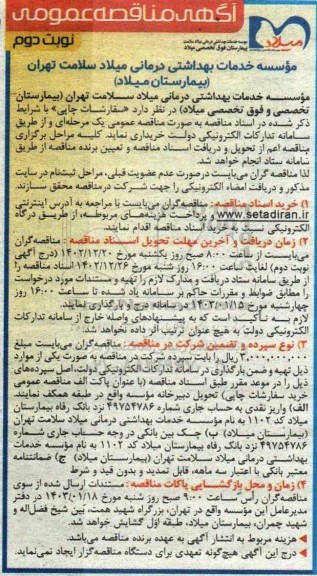 آگهی مناقصه عمومی
نوبت دوم
میلاد
موسسه خدمات بهداشتی درمانی میلاد سلامت تهران
بیمارستان فوق تخصصی میلاد
مؤسسه خدمات بهداشتی درمانی میلاد سلامت تهران
(بیمارستان میلاد)
مؤسسه خدمات بهداشتی درمانی میلاد سلامت تهران (بیمارستان
تخصصی و فوق تخصصی میلاد) در نظر دارد «سفارشات چاپی» با شرایط
ذکر شده در اسناد مناقصه به صورت مناقصه عمومی یک مرحله‌ای و از طریق
سامانه تدارکات الکترونیکی دولت خریداری نماید. کلیه مراحل برگزاری
مناقصه اعم از تحویل و دریافت اسناد مناقصه و تعیین برنده مناقصه از طریق
سامانه ستاد انجام خواهد شد.
لذا مناقصه گران می‌بایست درصورت عدم عضویت قبلی، مراحل ثبت‌نام در سایت
مذکور و دریافت امضاء الکترونیکی را جهت شرکت در مناقصه محقق سازند.
۱) خرید اسناد مناقصه : مناقصه‌گران می‌بایست با مراجعه به آدرس اینترنتی
www.setadiran.ir و پرداخت هزینه‌های مربوطه، از طریق درگاه
الکترونیکی نسبت به خرید اسناد مناقصه اقدام نمایند.
۲) زمان دریافت و آخرین مهلت تحویل اسناد مناقصه : مناقصه‌گران
می‌بایست از ساعت ۸:۰۰ صبح روز یکشنبه مورخ ۱۴۰۲/۱۲/۲۰ (درج آگهی
نوبت دوم) لغایت ساعت ۱۶:۰۰ روز شنبه مورخ ۱۴۰۲/۱۲/۲۶ اسناد مناقصه را
از طریق سامانه ستاد دریافت و مدارک لازم را تهیه و مستندات مورد درخواست
را مطابق ضوابط و مقررات حاکم بر سامانه یاد شده تا ساعت ۱۶:۰۰ روز
چهارشنبه مورخ ۱۴۰۳/۰۱/۱۵ در سامانه درج و بارگذاری نمایند.
لازم به تأکید است که به پیشنهادهای واصله خارج از سامانه تدارکات
الکترونیکی دولت به هیچ عنوان ترتیب اثر داده نخواهد شد.
۳) نوع سپرده و تضمین شرکت در مناقصه : مناقصه‌گران می‌بایست مبلغ
۳,۰۰۰,۰۰۰,۰۰۰ ریال را بابت سپرده شرکت در مناقصه به صورت یکی از موارد
ذیل تهیه و ضمن بارگذاری در سامانه تدارکات الکترونیکی دولت، اصل سپرده‌های
ذیل را در موعد مقرر طبق اسناد مناقصه (با عنوان پاکت الف مناقصه عمومی
خرید سفارشات چاپی) تحویل دبیرخانه مؤسسه واقع در طبقه همکف نمایند.
الف) واریز نقدی به حساب جاری شماره ۴۹۷۵۴۷۸۶ نزد بانک رفاه بیمارستان
میلاد کد ۱۱۰۲ به نام مؤسسه خدمات بهداشتی درمانی میلاد سلامت تهران
(بیمارستان میلاد) ب) چک بین بانکی در وجه حساب جاری شماره
۴۹۷۵۴۷۸۶ نزد بانک رفاه بیمارستان میلاد کد ۱۱۰۲ به نام مؤسسه خدمات
بهداشتی درمانی میلاد سلامت تهران (بیمارستان میلاد) ج) ضمانتنامه
معتبر بانکی با اعتبار سه ماهه، قابل تمدید و بدون قید و شرط
۴) زمان و محل بازگشایی پاکات مناقصه : مستندات ارسال شده از سوی
مناقصه‌گران رأس ساعت ۹:۰۰ صبح روز شنبه مورخ ۱۴۰۳/۰۱/۱۸ در دفتر
مدیرعامل این مؤسسه واقع در تهران، بزرگراه شهید همت، بین شیخ فضل‌اله و
شهید چمران، بیمارستان میلاد، طبقه اول گشایش خواهد شد.
هزینه مربوط به انتشار آگهی به عهده برنده مناقصه می‌باشد.
درج این آگهی هیچ‌گونه تعهدی برای دستگاه مناقصه‌گزار ایجاد نمی‌نماید.